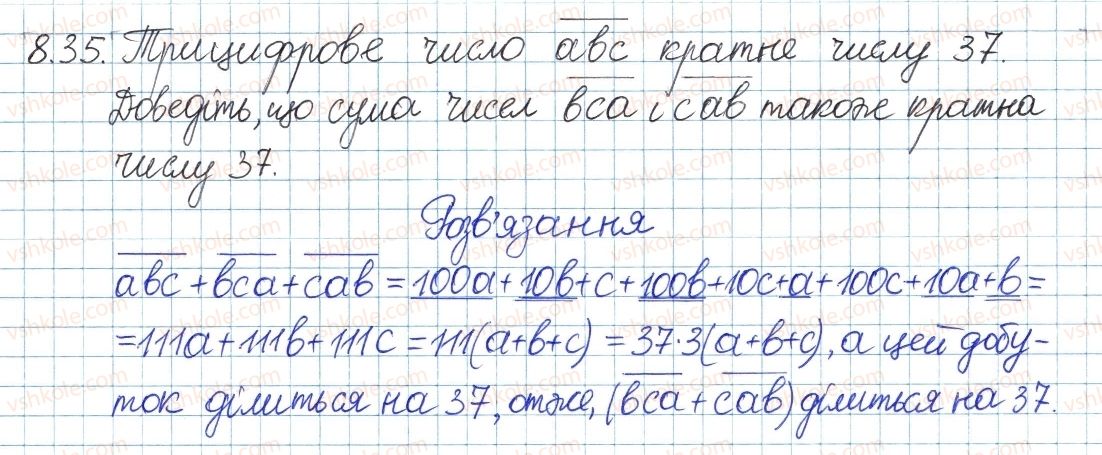 8.35. Трицифрове число a̅b̅c̅ кратне числу 37.
Доведіть, що сума чисел b̅c̅a̅ і c̅a̅b̅ також кратна
числу 37.
Розв'язання
a̅b̅c̅ + b̅c̅a̅ + c̅a̅b̅ = 100a + 10b + c + 100b + 10c + a + 100c + 10a + b =
= 111a + 111b + 111c = 111(a+b+c) = 37·3(a+b+c), а цей добу-
ток ділиться на 37, отже, (b̅c̅a̅ + c̅a̅b̅) ділиться на 37.
vshkole.com